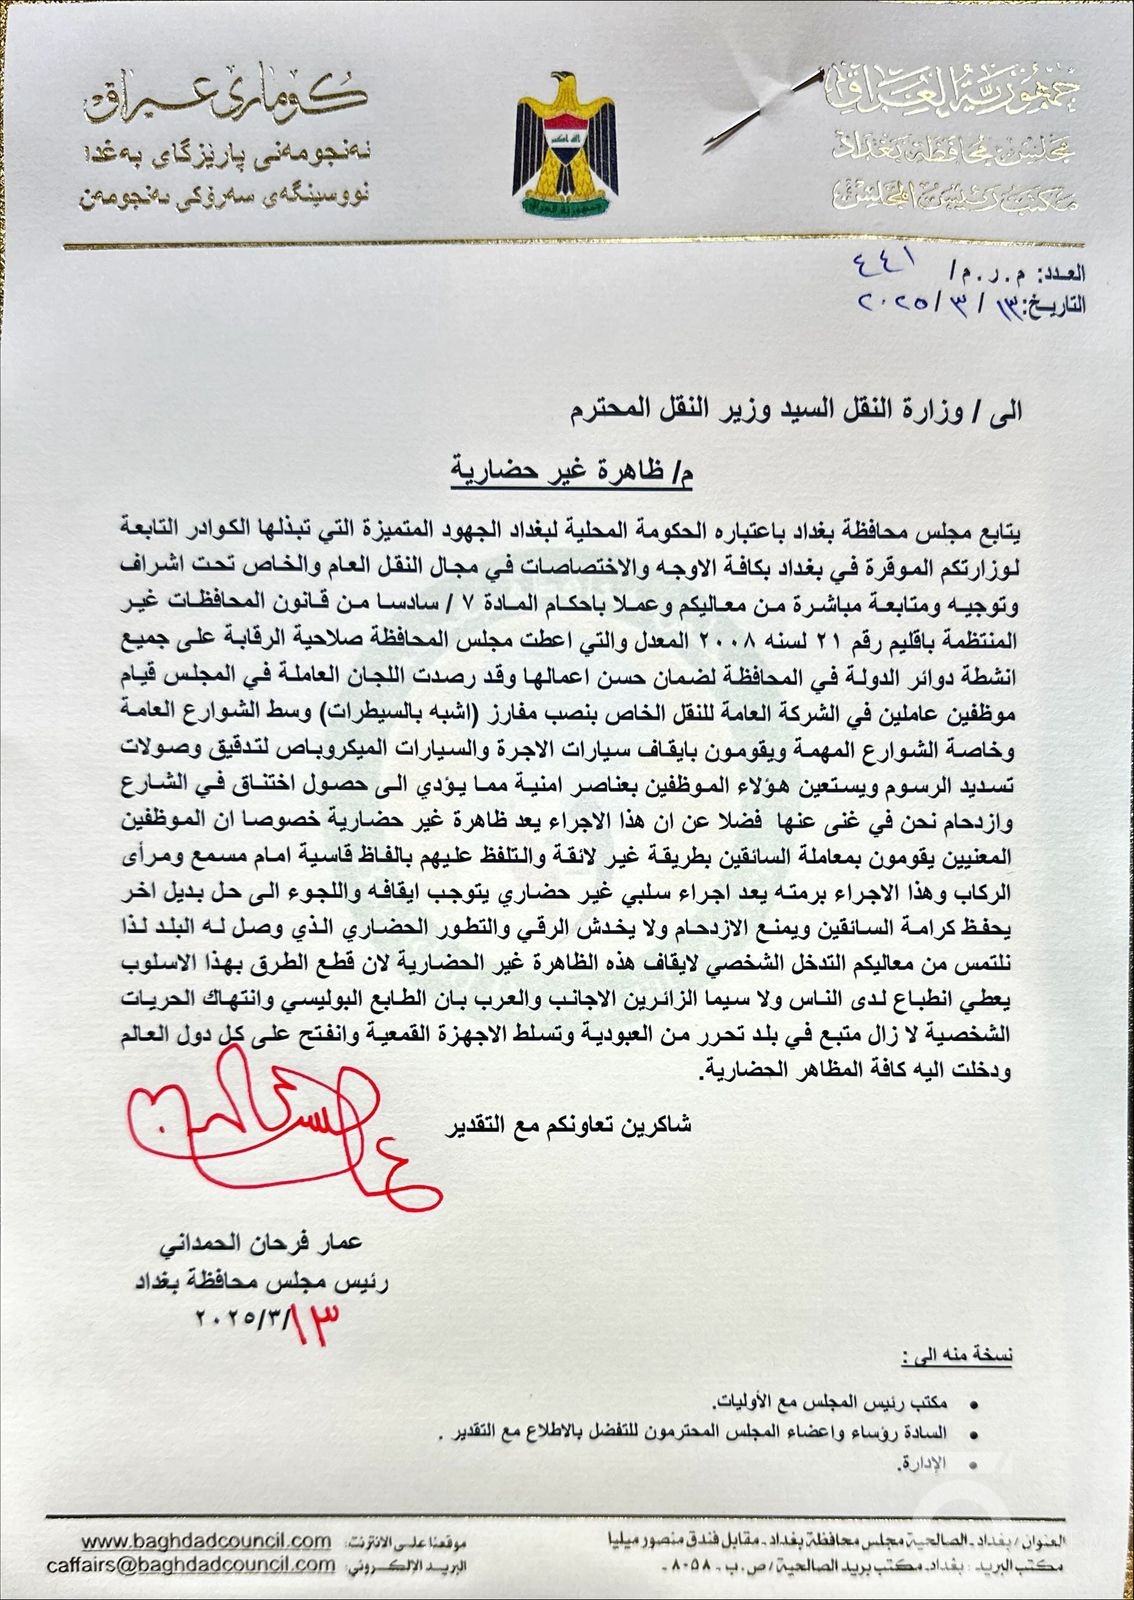 جمهورية العراق
مجلس محافظة بغداد
مكتب رئيس المجلس
كۆماری عیراق
ئەنجومەنی پارێزگای بەغدا
نووسینگەی سەرۆکی ئەنجومەن
جمهورية العراق
العدد: م.ر.م/ ٤٤١
التاريخ: ١٣ / ٣ / ٢٠٢٥
الى / وزارة النقل السيد وزير النقل المحترم
م/ ظاهرة غير حضارية
يتابع مجلس محافظة بغداد باعتباره الحكومة المحلية لبغداد الجهود المتميزة التي تبذلها الكوادر التابعة
لوزارتكم الموقرة في بغداد بكافة الاوجه والاختصاصات في مجال النقل العام والخاص تحت اشراف
وتوجيه ومتابعة مباشرة من معاليكم وعملا باحكام المادة ٧ / سادسا من قانون المحافظات غير
المنتظمة باقليم رقم ٢١ لسنه ٢٠٠٨ المعدل والتي اعطت مجلس المحافظة صلاحية الرقابة على جميع
انشطة دوائر الدولة في المحافظة لضمان حسن اعمالها وقد رصدت اللجان العاملة في المجلس قيام
موظفين عاملين في الشركة العامة للنقل الخاص بنصب مفارز (اشبه بالسيطرات) وسط الشوارع العامة
وخاصة الشوارع المهمة ويقومون بايقاف سيارات الاجرة والسيارات الميكروباص لتدقيق وصولات
تسديد الرسوم ويستعين هؤلاء الموظفين بعناصر امنية مما يؤدي الى حصول اختناق في الشارع
وازدحام نحن في غنى عنها فضلا عن ان هذا الاجراء يعد ظاهرة غير حضارية خصوصا ان الموظفين
المعنيين يقومون بمعاملة السائقين بطريقة غير لائقة والتلفظ عليهم بالفاظ قاسية امام مسمع ومرأى
الركاب وهذا الاجراء برمته يعد اجراء سلبي غير حضاري يتوجب ايقافه واللجوء الى حل بديل اخر
يحفظ كرامة السائقين ويمنع الازدحام ولا يخدش الرقي والتطور الحضاري الذي وصل له البلد لذا
نلتمس من معاليكم التدخل الشخصي لايقاف هذه الظاهرة غير الحضارية لان قطع الطرق بهذا الاسلوب
يعطي انطباع لدى الناس ولا سيما الزائرين الاجانب والعرب بان الطابع البوليسي وانتهاك الحريات
الشخصية لا زال متبع في بلد تحرر من العبودية وتسلط الاجهزة القمعية وانفتح على كل دول العالم
ودخلت اليه كافة المظاهر الحضارية.
شاكرين تعاونكم مع التقدير
عمار فرحان الحمداني
رئيس مجلس محافظة بغداد
١٣/٣/٢٠٢٥
نسخة منه الى :
• مكتب رئيس المجلس مع الأوليات.
• السادة رؤساء واعضاء المجلس المحترمون للتفضل بالاطلاع مع التقدير .
• الإدارة.
العنوان / بغداد - الصالحية مجلس محافظة بغداد - مقابل فندق منصور ميليا
مكتب البريد : بغداد - مكتب بريد الصالحية / ص.ب - ٨٠٥٨ -
موقعنا على الانترنت: www.baghdadcouncil.com
البريد الإلكتروني: caffairs@baghdadcouncil.com